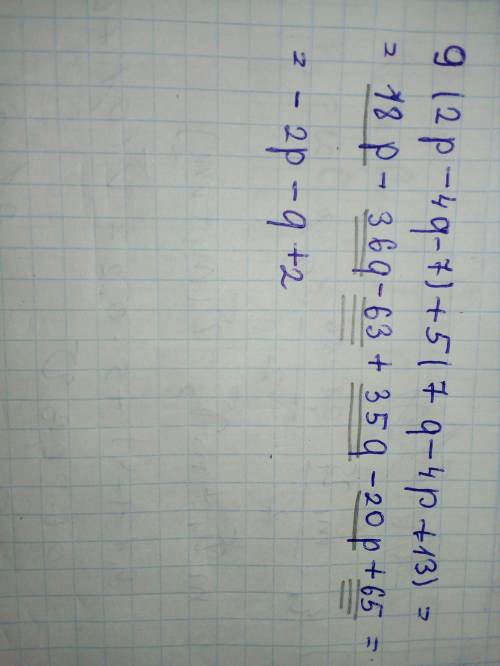 9 (2p - 4q - 7) + 5(7q - 4p + 13) =
= 18p - 36q - 63 + 35q - 20p + 65 =
= - 2p - q + 2